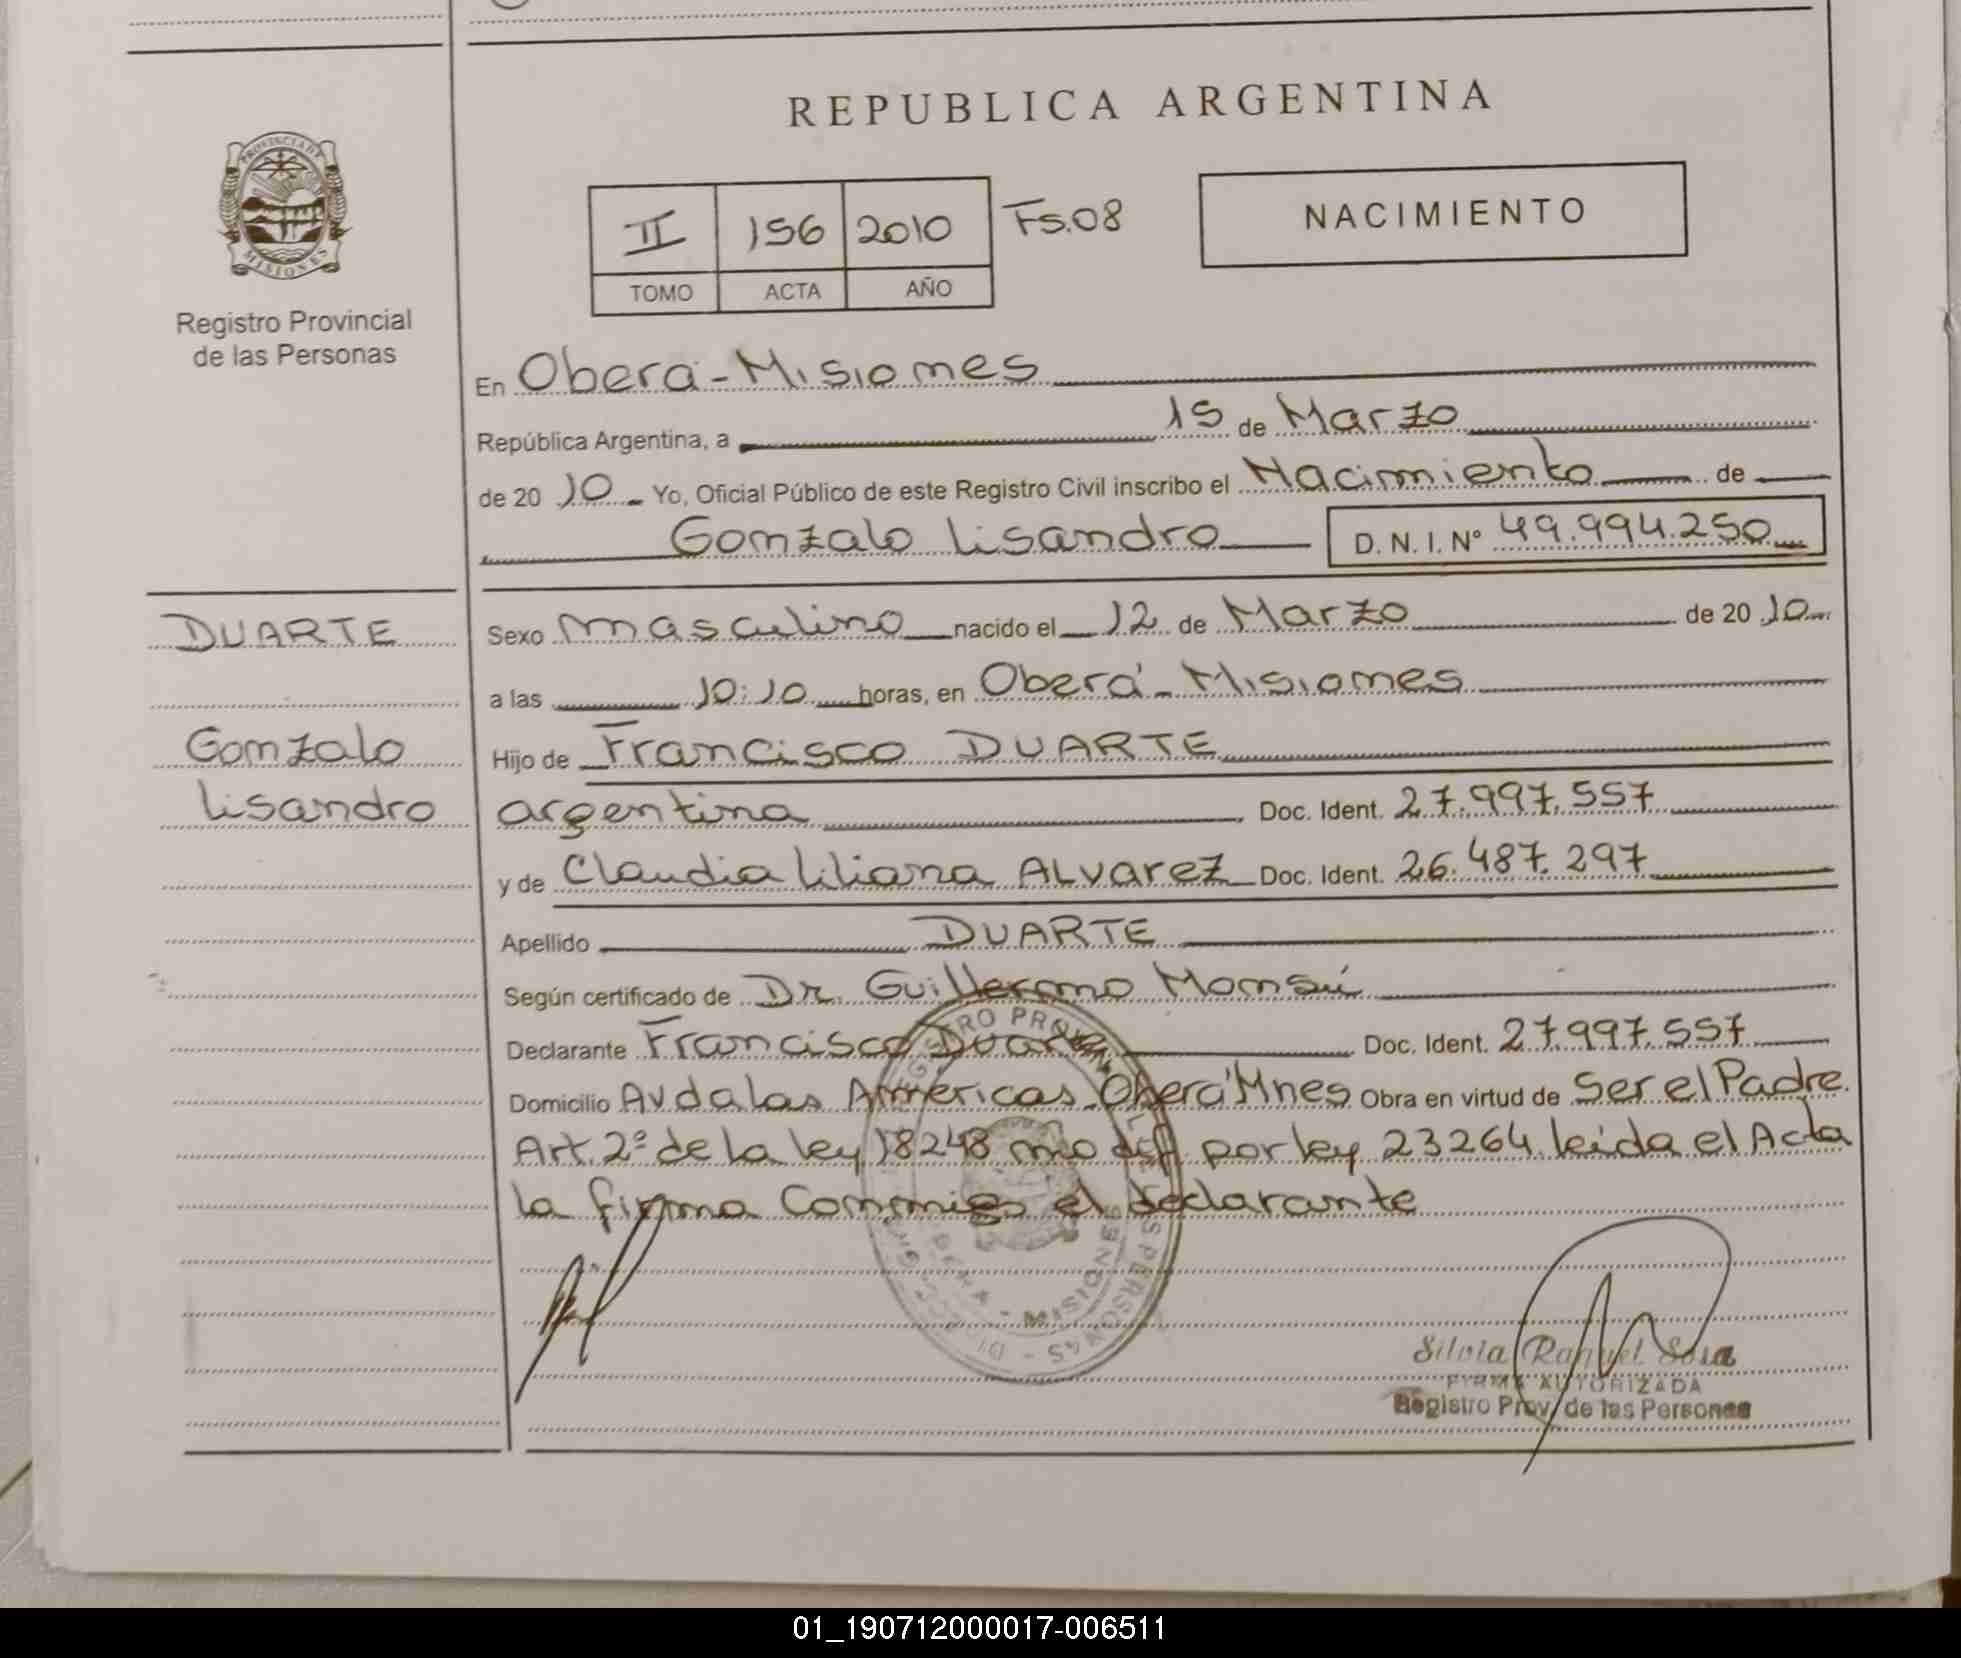 REPUBLICA ARGENTINA
PROVINCIA DE
MISIONES
Registro Provincial
de las Personas
II 156 2010 Fs.08
TOMO ACTA AÑO
NACIMIENTO
En Oberá - Misiones
República Argentina, a 15 de Marzo
de 20 10 Yo, Oficial Público de este Registro Civil inscribo el Nacimiento de
Gonzalo Lisandro D. N. I. N° 49.994.250
DUARTE
Gonzalo
Lisandro
Sexo masculino nacido el 12 de Marzo de 20 10
a las 10:10 horas, en Oberá - Misiones
Hijo de Francisco DUARTE
argentina Doc. Ident. 27.997.557
y de Claudia Liliana ALVAREZ Doc. Ident. 26.487.297
Apellido DUARTE
Según certificado de Dr. Guillermo
Declarante Francisco Duarte Doc. Ident. 27.997.557
Domicilio Avda las Americas Oberá Mnes Obra en virtud de Ser el Padre.
Art. 2º de la ley 18248 modif por ley 23264 leida el Acta
la firma Conmigo el declarante
Silvia Raquel Sosa
FIRMA AUTORIZADA
Registro Prov. de las Personas
01_190712000017-006511